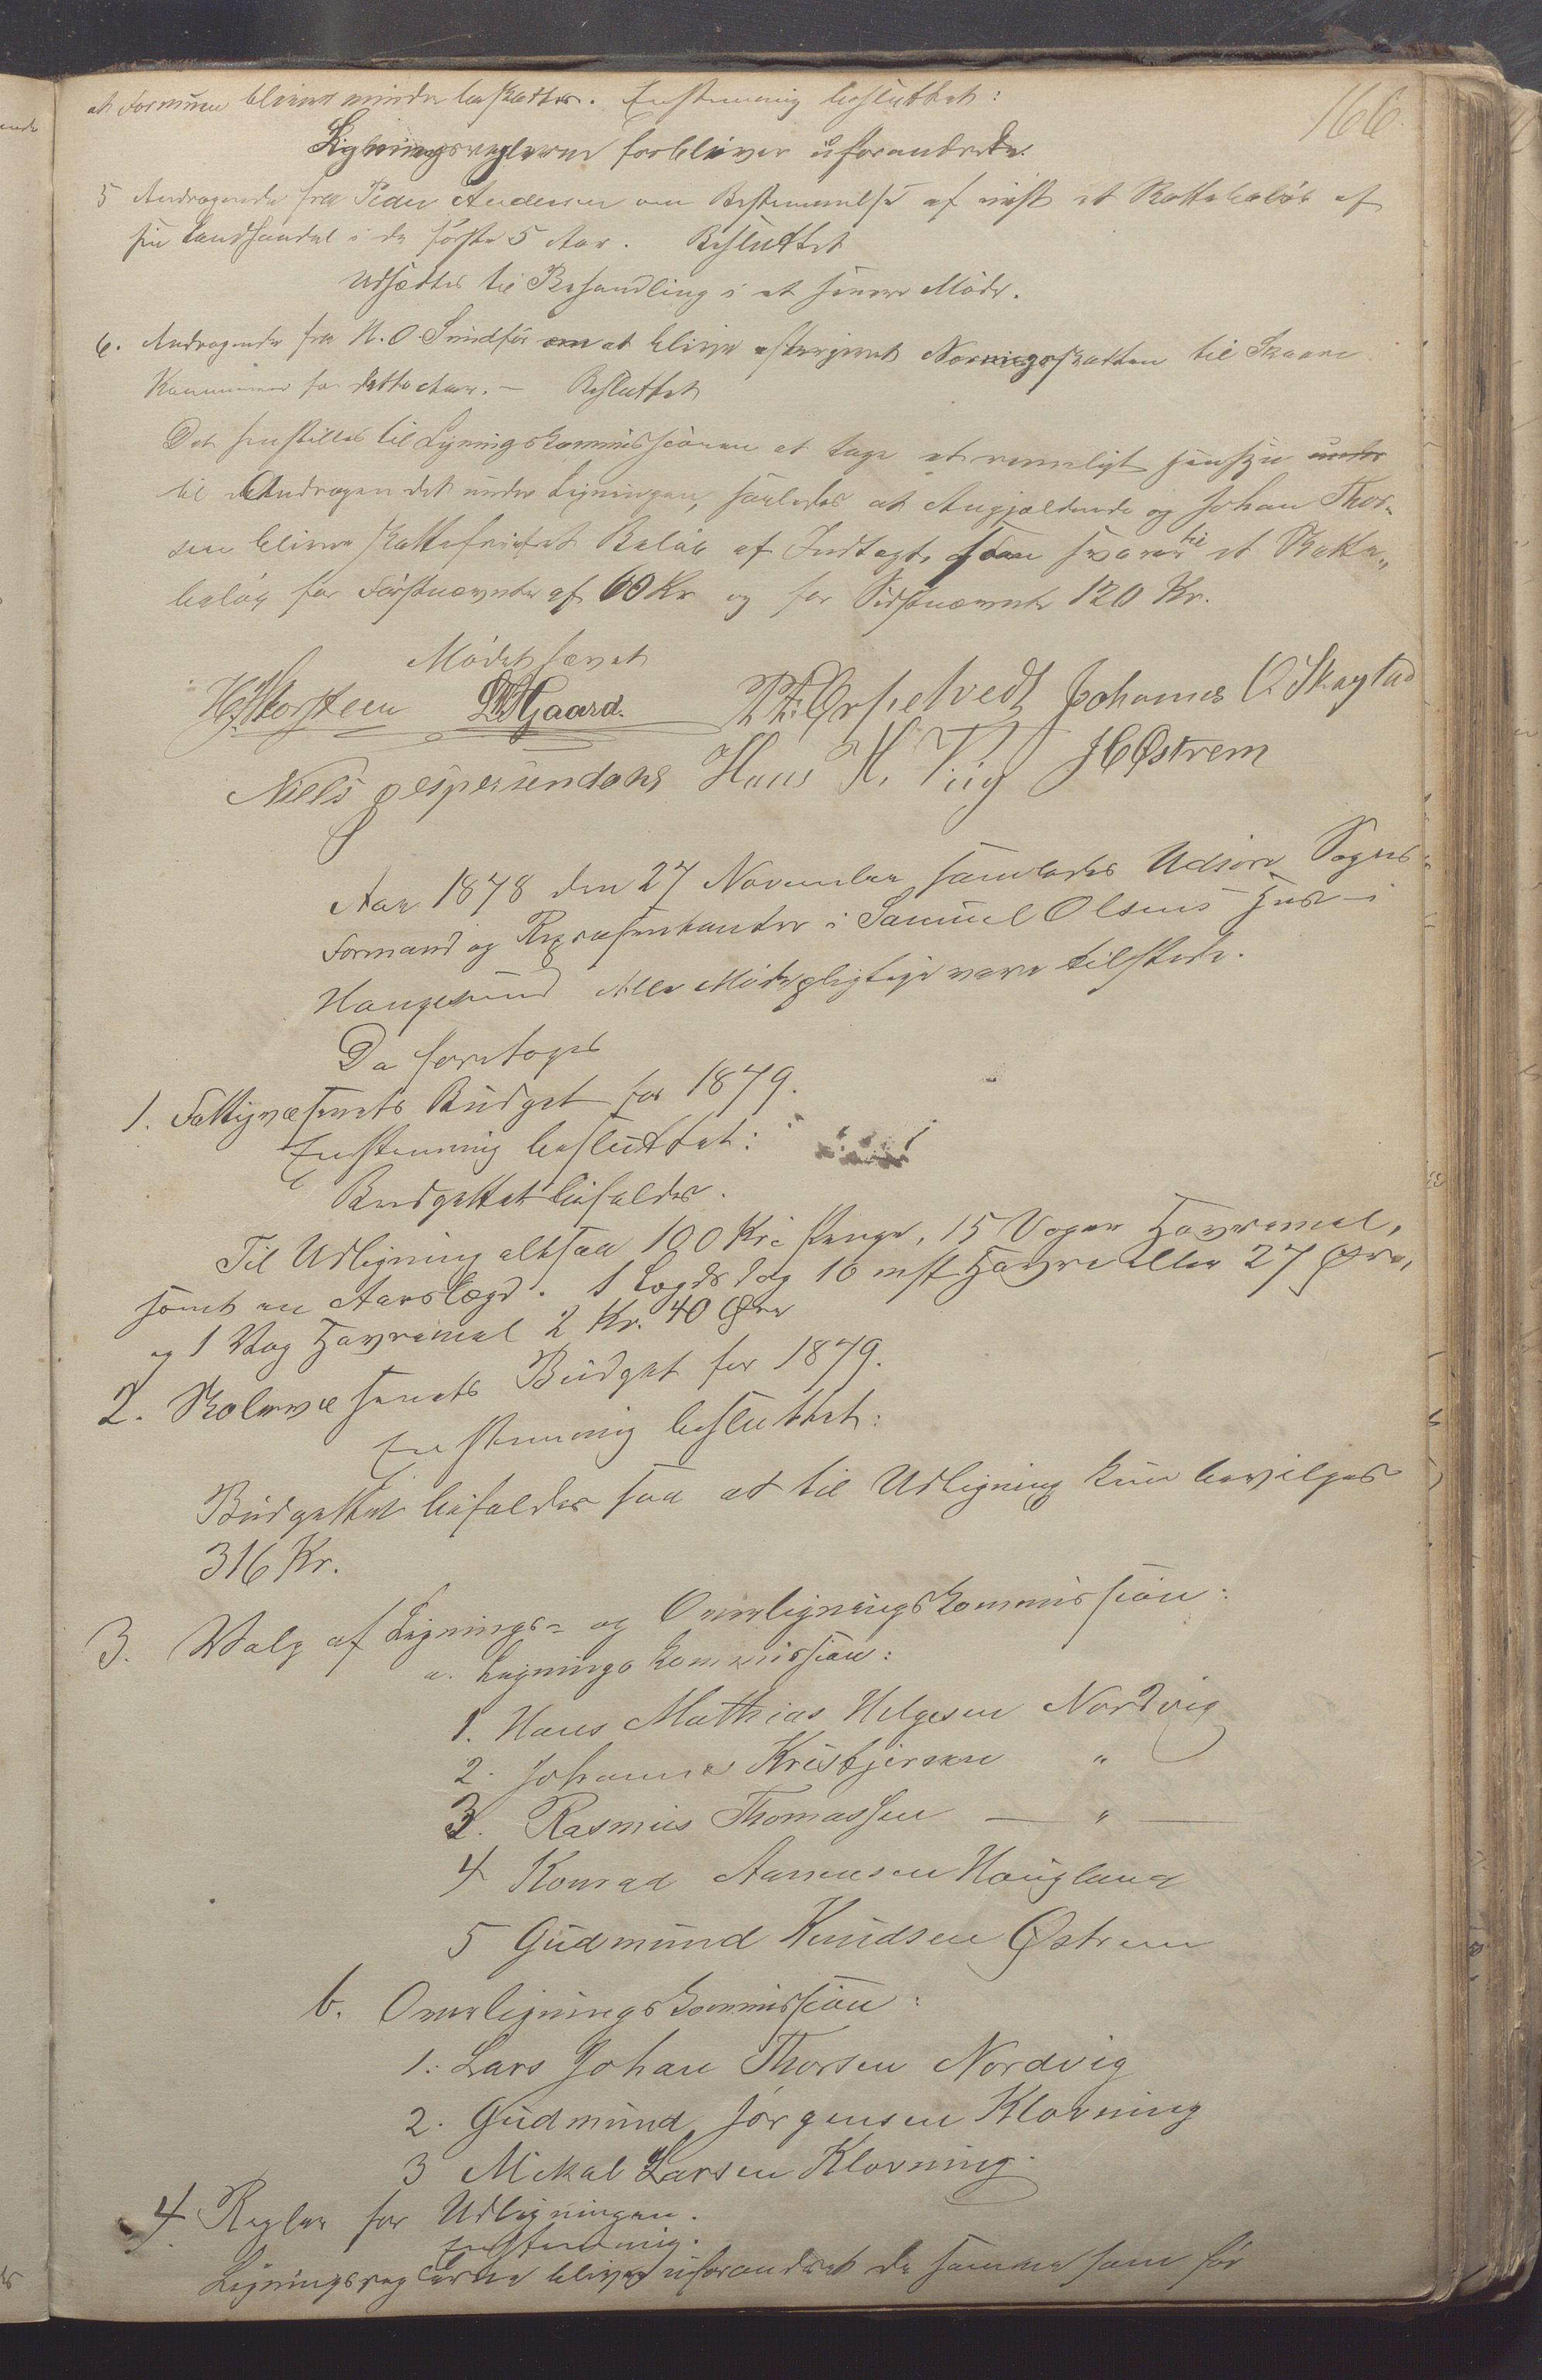 166.
at Formuen bliver mindre beskattet. Enstemmig besluttet:
Ligningsreglerne forbliver uforandrede.
5 Andragende fra Peder Andersen om Bestemmelse af et Skattebeløb af
sin Landhandel i de første 5 Aar. Besluttet
Udsættes til Behandling i et senere Møde.
6. Andragende fra N. O. Sundfør om at blive eftergivet Næringsskatten til Skaare
Kommune for dette Aar. – Besluttet
Det henstilles til Ligningskommissionen at tage et rimeligt Hensyn under
til Andragendet under Ligningen, saaledes at Angjældende og Johan Thor-
sen bliver skattefri et Beløb af Indtægt, som svarer til et Skatte-
beløb for Førstnævnte af 60 Kr og for Sidstnævnte 120 Kr.
Mødet hævet
Johannes O. Skagstad
Niels Jespersen Hans H. Viig J C Østrem
Aar 1878 den 27 November samledes Udsire Sogns
Formænd og Repræsentanter i Samuel Olsens Hus i
Haugesund Alle Mødepligtige vare tilstede.
Da foretoges
1. Fattigvæsenets Budget for 1879.
Enstemmig besluttet:
Budgettet bifaldes.
Til Udligning altsaa 100 Kr i Penge, 15 Voger Havremel,
samt en Aarslægd. 1 Lægdsdag 10 Havre eller 27 Øre,
og 1 Vog Havremel 2 Kr. 40 Øre
2. Skolevæsenets Budget for 1879.
Enstemmig besluttet:
Budgettet bifaldes saa at til Udligning kun bevilges
316 Kr.
3. Valg af Lignings- og Overligningskommission:
a. Ligningskommission:
1. Hans Mathias Helgesen Nordvig
2. Johannes Kristjersen "
3. Rasmus Thomassen — " —
4 Konrad Aanensen Haugland
5 Gudmund Knudsen Østrem
b. Overligningskommission:
1. Lars Johan Thorsen Nordvig
2. Gudmund Jørgensen Klovning
3 Mikal Larsen Klovning.
4 Regler for Udligningen.
Enstemmig.
Ligningsreglerne bliver uforandret de samme som før